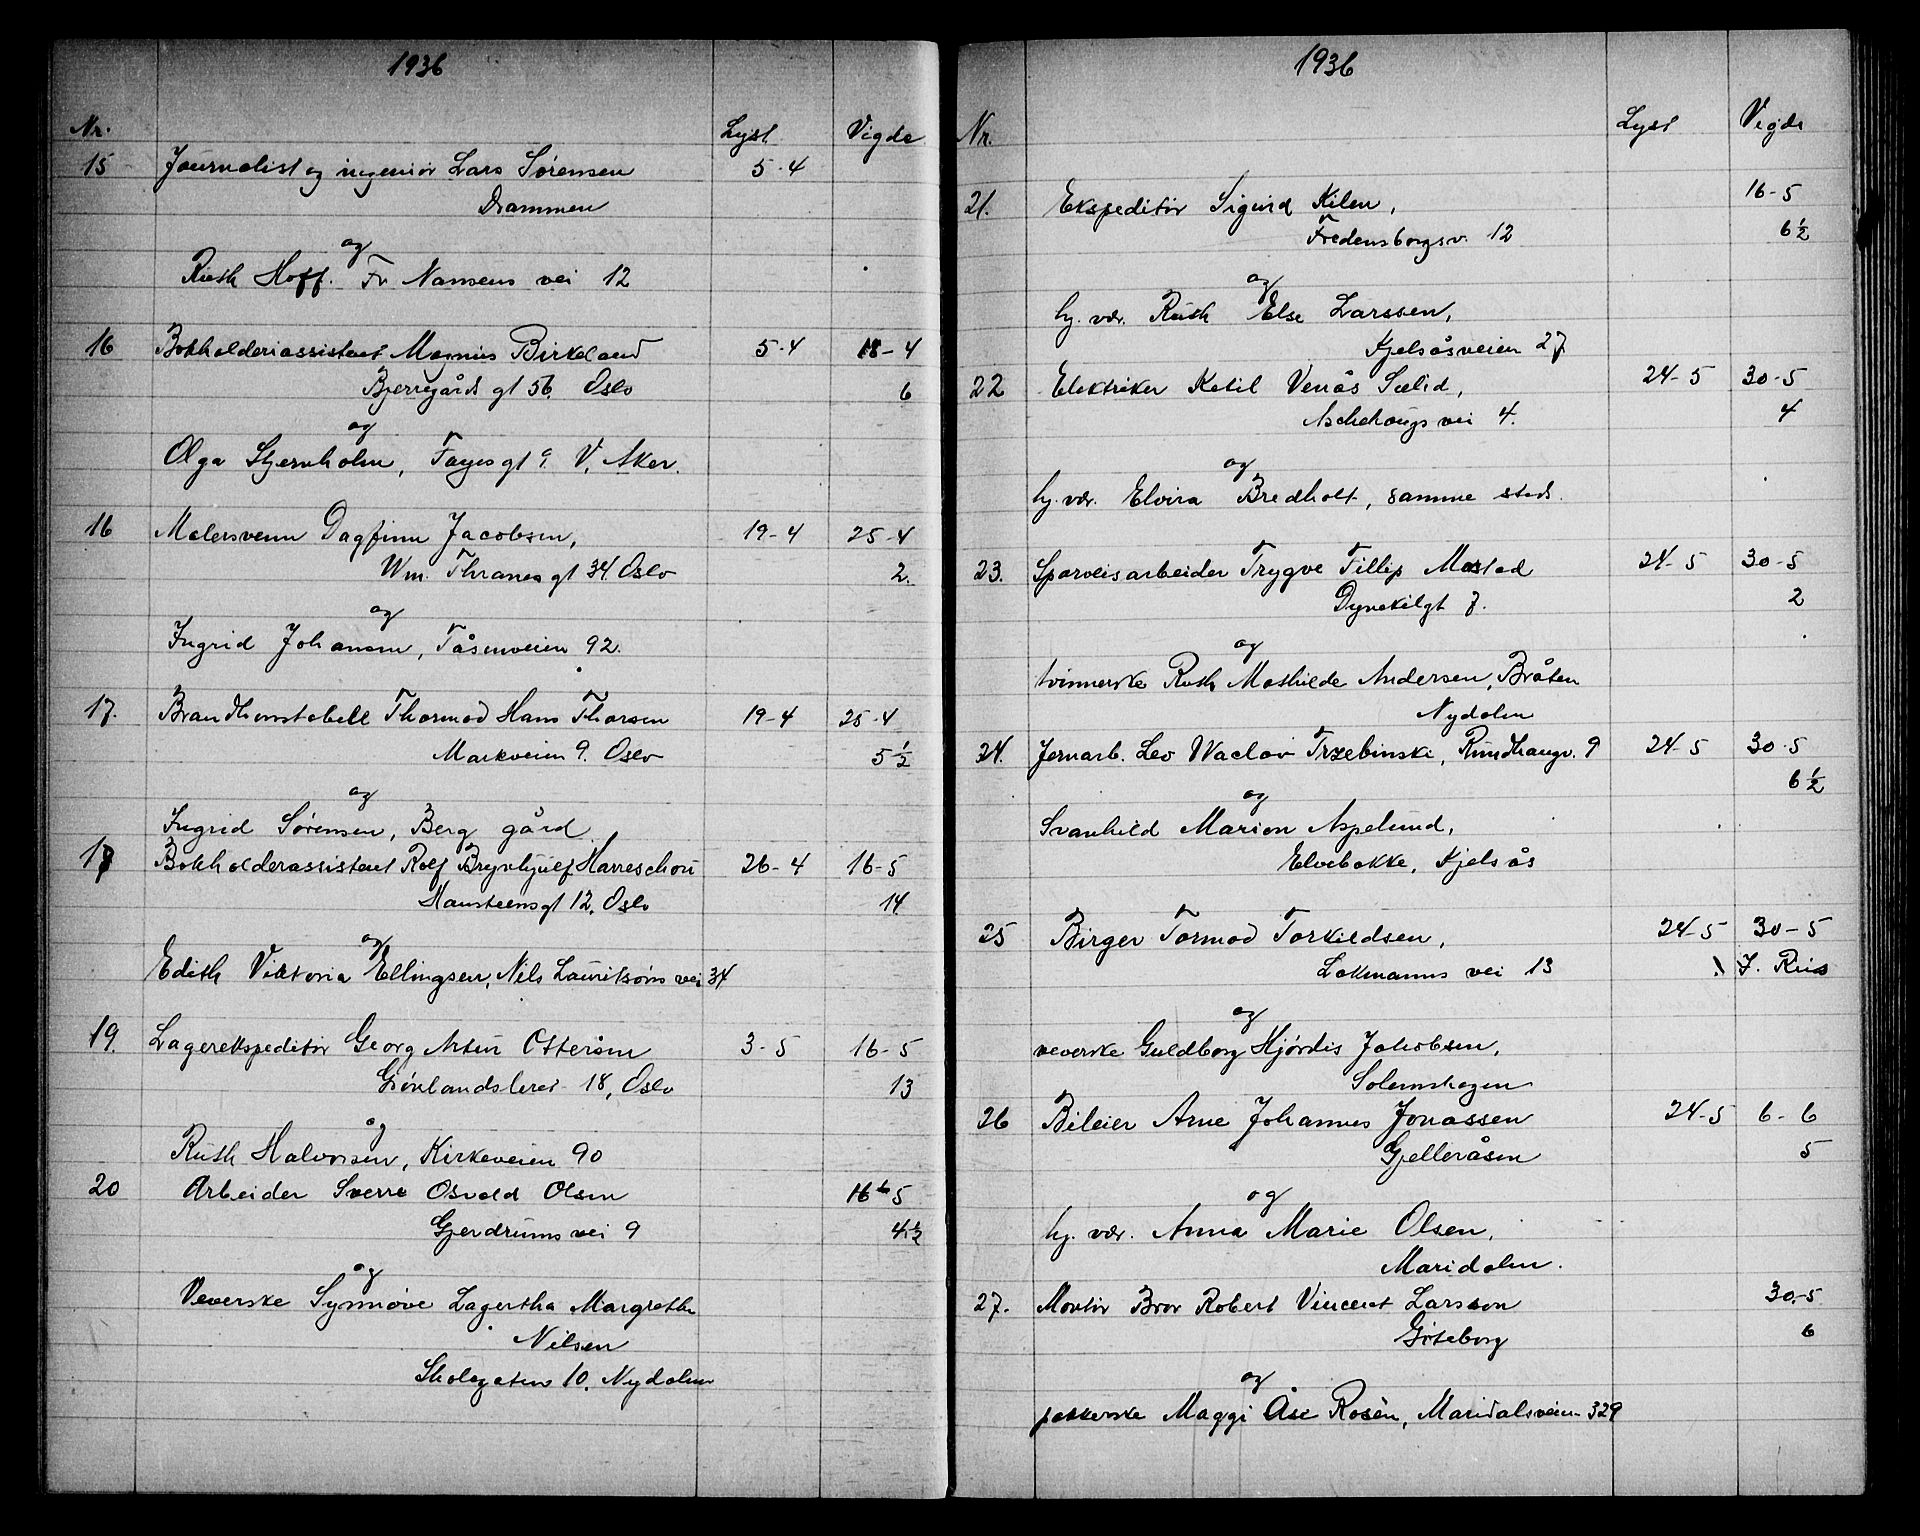 1936
Nr. Lyst Vigde
15 Journalist og ingeniør Lars Sørensen 5-4
Drammen
og
Ruth Hoff. Fr Nansens vei 12
16 Bokholderiassistent Magnus Birkeland 5-4 18-4
Bjerregårds gt 56. Oslo 6
og
Olga Stjernholm, Fayes gt 9. V. Aker.
16 Malersvenn Dagfinn Jacobsen, 19-4 25-4
Wm. Thranes gt 34. Oslo 2.
og
Ingrid Johansen, Tåsenveien 92.
17. Brandkonstabell Thormod Hans Thorsen 19-4 25-4
Markveien 9. Oslo 5 ½
og
Ingrid Sørensen, Berg gård
18 Bokholderassistent Rolf Brynhjulf Harreschou 26-4 16-5
Hausteensgt 12. Oslo 14
og
Edith Viktoria Ellingsen, Nils Lauritsøns vei 34
19. Lagerekspeditør Georg Artur Ottersen 3-5 16-5
Grønlandsleret 18, Oslo 13
og
Ruth Halvorsen, Kirkeveien 90
20 Arbeider Sverre Osvald Olsen 16-5
Gjerdrums vei 9 4 ½
og
Veverske Synnøve Lagertha Margrethe
Nilsen
Skolegaten 10. Nydalen
1936
Nr. Lyst Vigde
21. Ekspeditør Sigurd Kilen, 16-5
Fredensborgsv. 12 6 ½
og
hj. vær. Ruth Else Larssen,
Kjelsåsveien 27
22 Elektriker Ketil Venås Sælid, 24-5 30-5
Aschehougs vei 4. 4
og
hj. vær. Elvira Bredholt, samme sted.
23. Sporveisarbeider Trygve Fillip Mostad 24-5 30-5
Dynekilgt 7. 2
og
tvinnerske Ruth Mathilde Andersen, Bråten
Nydalen
24. Jernarb. Leo Waclav Trzebinski, Rundhaugv. 9 24-5 30-5
6 ½
og
Svanhild Marion Aspelund,
Elvebakke, Kjelsås
25 Birger Tormod Torkildsen, 24-5 30-5
Lakmanns vei 13 J. Riis
og
veverske Guldborg Hjørdis Jakobsen,
Solemskogen
26 Bileier Arne Johannes Jonassen 24-5 6-6
Gjelleråsen 5
og
hj. vær. Anna Marie Olsen,
Maridalen.
27. Montør Bror Robert Vincent Larsson 30-5
Göteborg 6
og
pakkerske Maggi Åse Rosèn, Maridalsveien 329